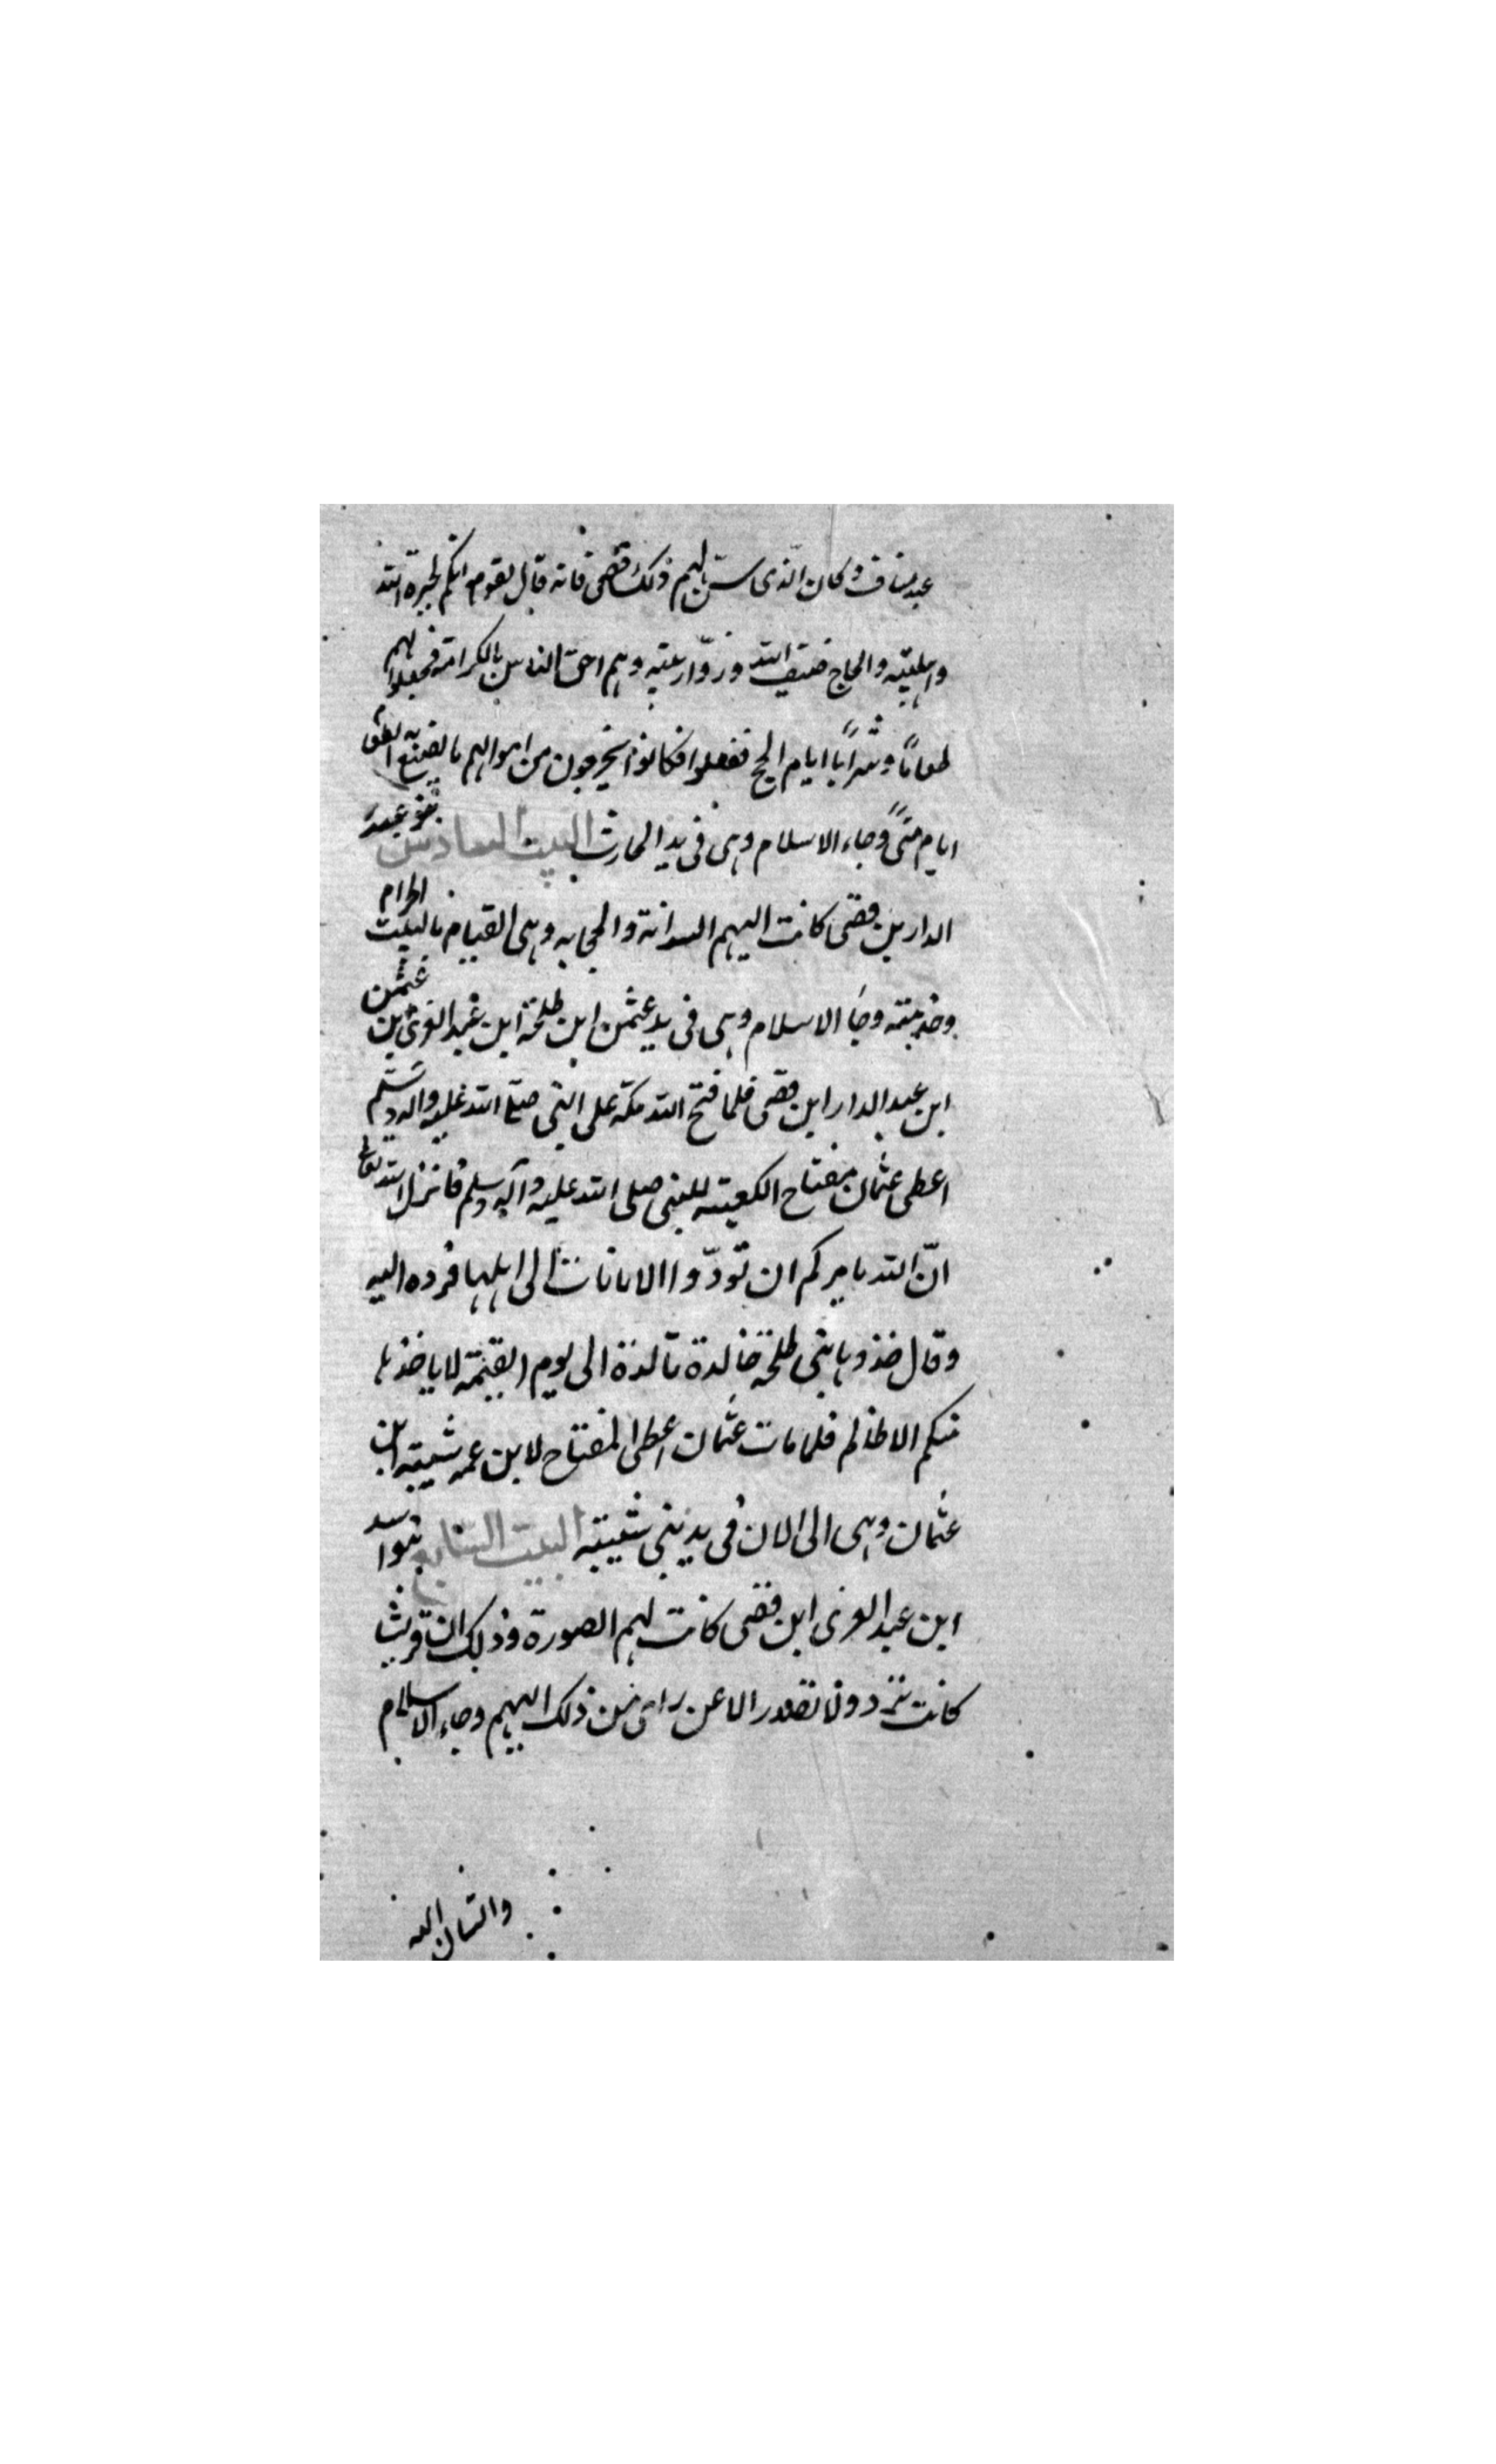 عبد مناف وكان الذى سن لهم ذلك قصى فانه قال لقومه انكم لجيرة الله
واهل بيته والحاج ضيف الله وزوّار بيته وهم احق الناس بالكرامة فجعلوا لهم
طعاماً وشراباً ايام الحج ففعلوا فكانوا يخرجون من اموالهم ما يصنع به الطعام
ايام منىً وجاء الاسلام وهى فى يد الحارث البيت السادس بنو عبد
الدار بن قصى كانت اليهم السدانة والحجابه وهى القيام بالبيت الحرام
وخدمته وجاء الاسلام وهى فى يد عثمن ابن طلحة ابن عبد العزى بن عثمن
ابن عبد الدار ابن قصى فلما فتح الله مكة على النبى صلى الله عليه واله وسلم
اعطى عثمان مفتاح الكعبته للنبى صلى الله عليه وآله وسلم فانزل الله تعالى
انّ الله يامركم ان تودّوا الامانات الى اهلها فرده اليه
وقال خذوها بنى طلحة خالدة تالدة الى يوم القيمة لا ياخذها
منكم الا ظالم فلما مات عثمان اعطى المفتاح لابن عمه شيبه ابن
عثمان وهى الى الان فى يد بنى شيبه البيت السابع بنوا اسد
ابن عبد العزى ابن قصى كانت لهم الصورة وذلك ان قريشا
كانت تزد ولا تصدر الا عن راى من ذلك اليهم وجاء الاسلام